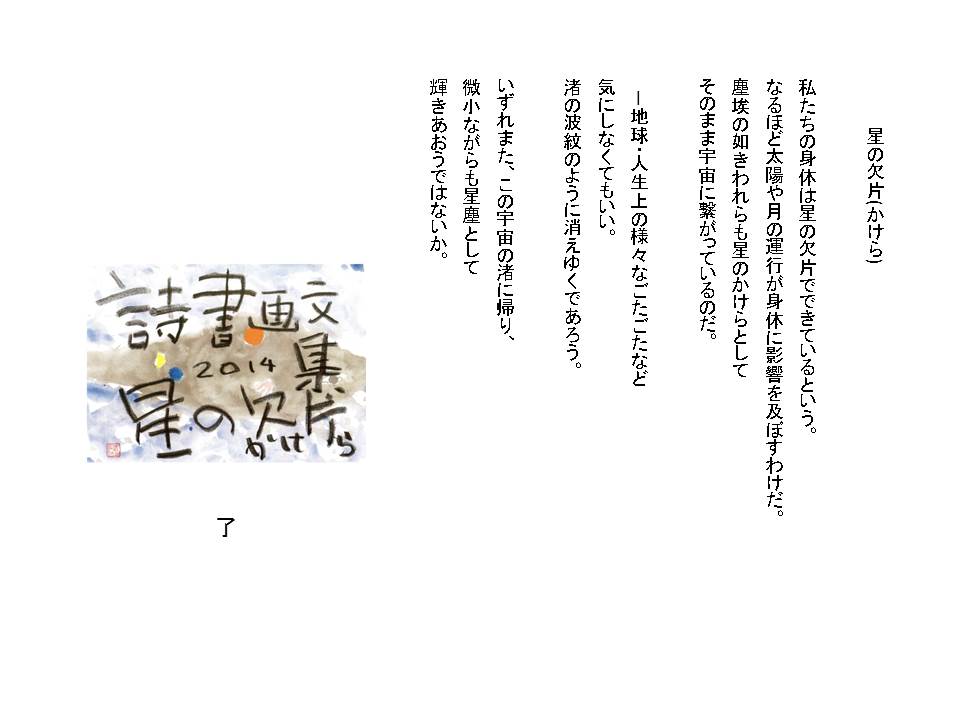 星の欠片(かけら)
私たちの身体は星の欠片でできているという。
なるほど太陽や月の運行が身体に影響を及ぼすわけだ。
塵埃の如きわれらも星のかけらとして
そのまま宇宙に繋がっているのだ。
―地球・人生上の様々なごたごたなど
気にしなくてもいい。
渚の波紋のように消えゆくであろう。
いずれまた、この宇宙の渚に帰り、
微小ながらも星塵として
輝きあおうではないか。
詩書画文集
2014
星の欠片
かけら
了